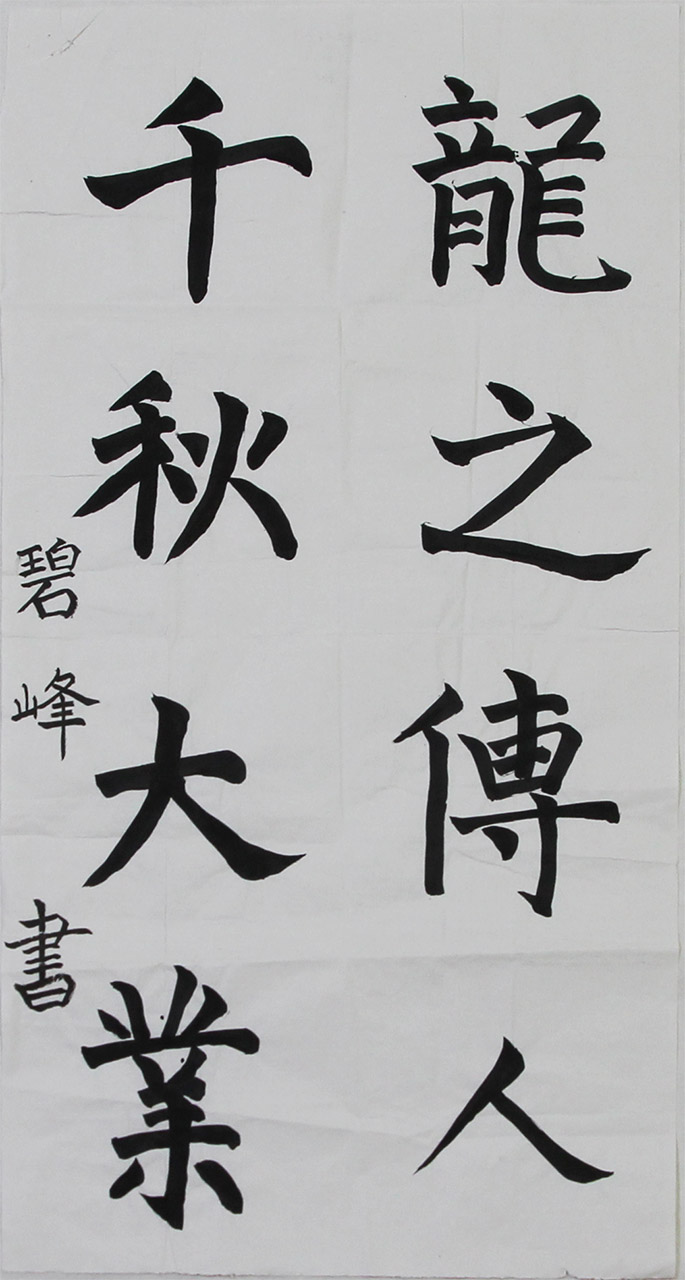 龍之傳人
千秋大業
碧峰書